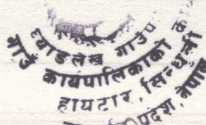 घ्याङलेख गाउँप
गाउँ कार्यपालिकाको का
हायटार, सिन्धुली
प्रदेश, नेपाल